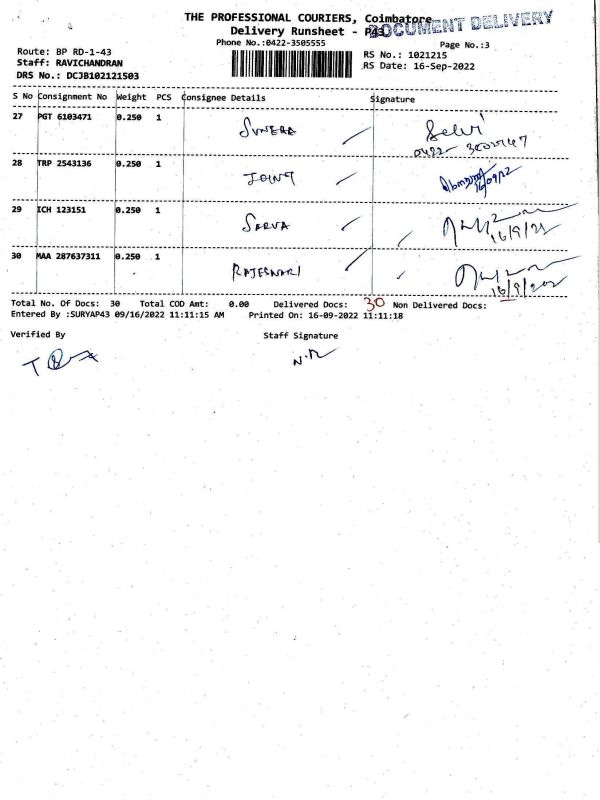 THE PROFESSIONAL COURIERS, Coimbatore
DOCUMENT DELIVERY
Delivery Runsheet - P43
Phone No.:0422-3505555
Page No.:3
Route: BP RD-1-43
RS No.: 1021215
Staff: RAVICHANDRAN
RS Date: 16-Sep-2022
DRS No.: DCJB102121503
S No Consignment No Weight PCS Consignee Details Signature
27 PGT 6103471 0.250 1 Selvi
0422-
28 TRP 2543136 0.250 1 JOINT
16/09/22
29 ICH 123151 0.250 1 SARVA
16/9/22
30 MAA 287637311 0.250 1 RAJESWARI
16/9/2022
Total No. Of Docs: 30 Total COD Amt: 0.00 Delivered Docs: 30 Non Delivered Docs:
Entered By :SURYAP43 09/16/2022 11:11:15 AM Printed On: 16-09-2022 11:11:18
Verified By Staff Signature